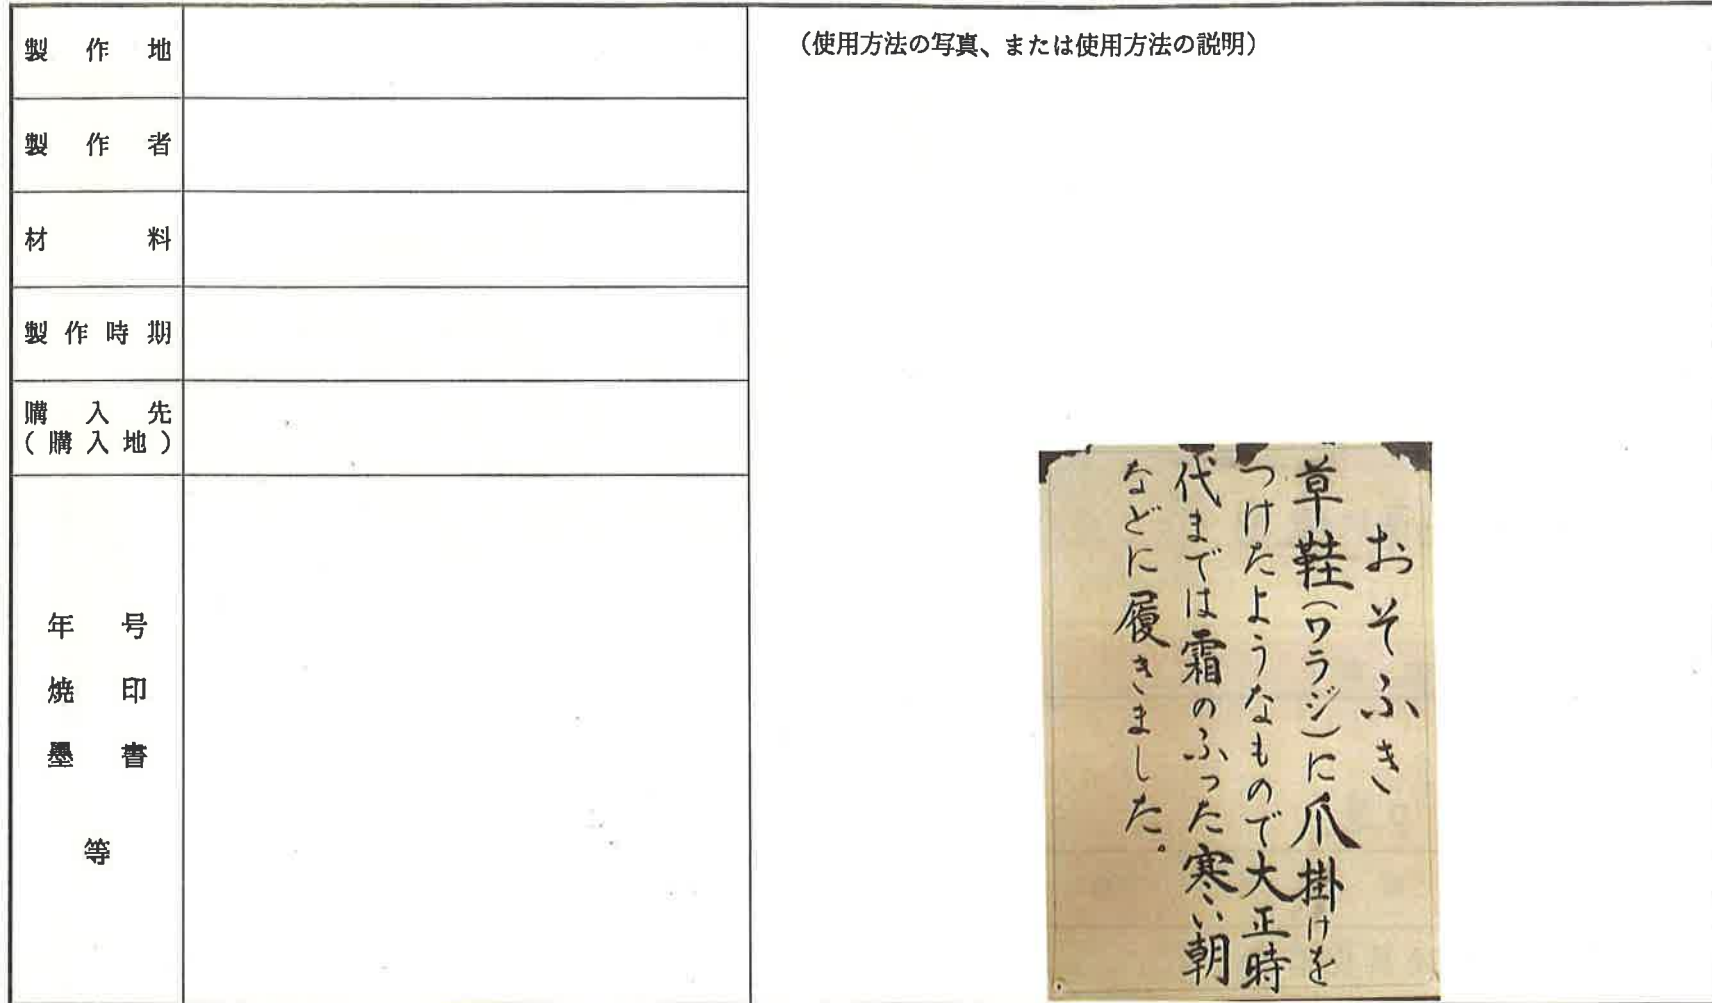 製作地
製作者
材料
製作時期
購入先
(購入地)
年号
焼印
墨書
等
(使用方法の写真、または使用方法の説明)
おそふき
草鞋(ワラジ)に爪掛けを
つけたようなもので大正時
代までは霜のふった寒い朝
などに履きました。